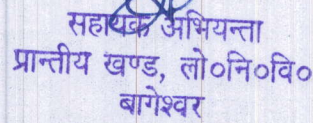 सहायक अभियन्ता
प्रान्तीय खण्ड, लो०नि०वि०
बागेश्वर